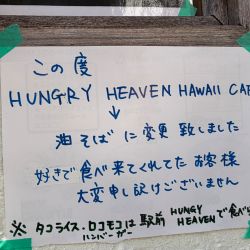 この度
HUNGRY HEAVEN HAWAII CAF
↓
油そばに変更致しました
好きで食べ来てくれてたお客様
大変申し訳ございません
※タコライス・ロコモコは駅前 HUNGRY HEAVENで食べ
ハンバーガー